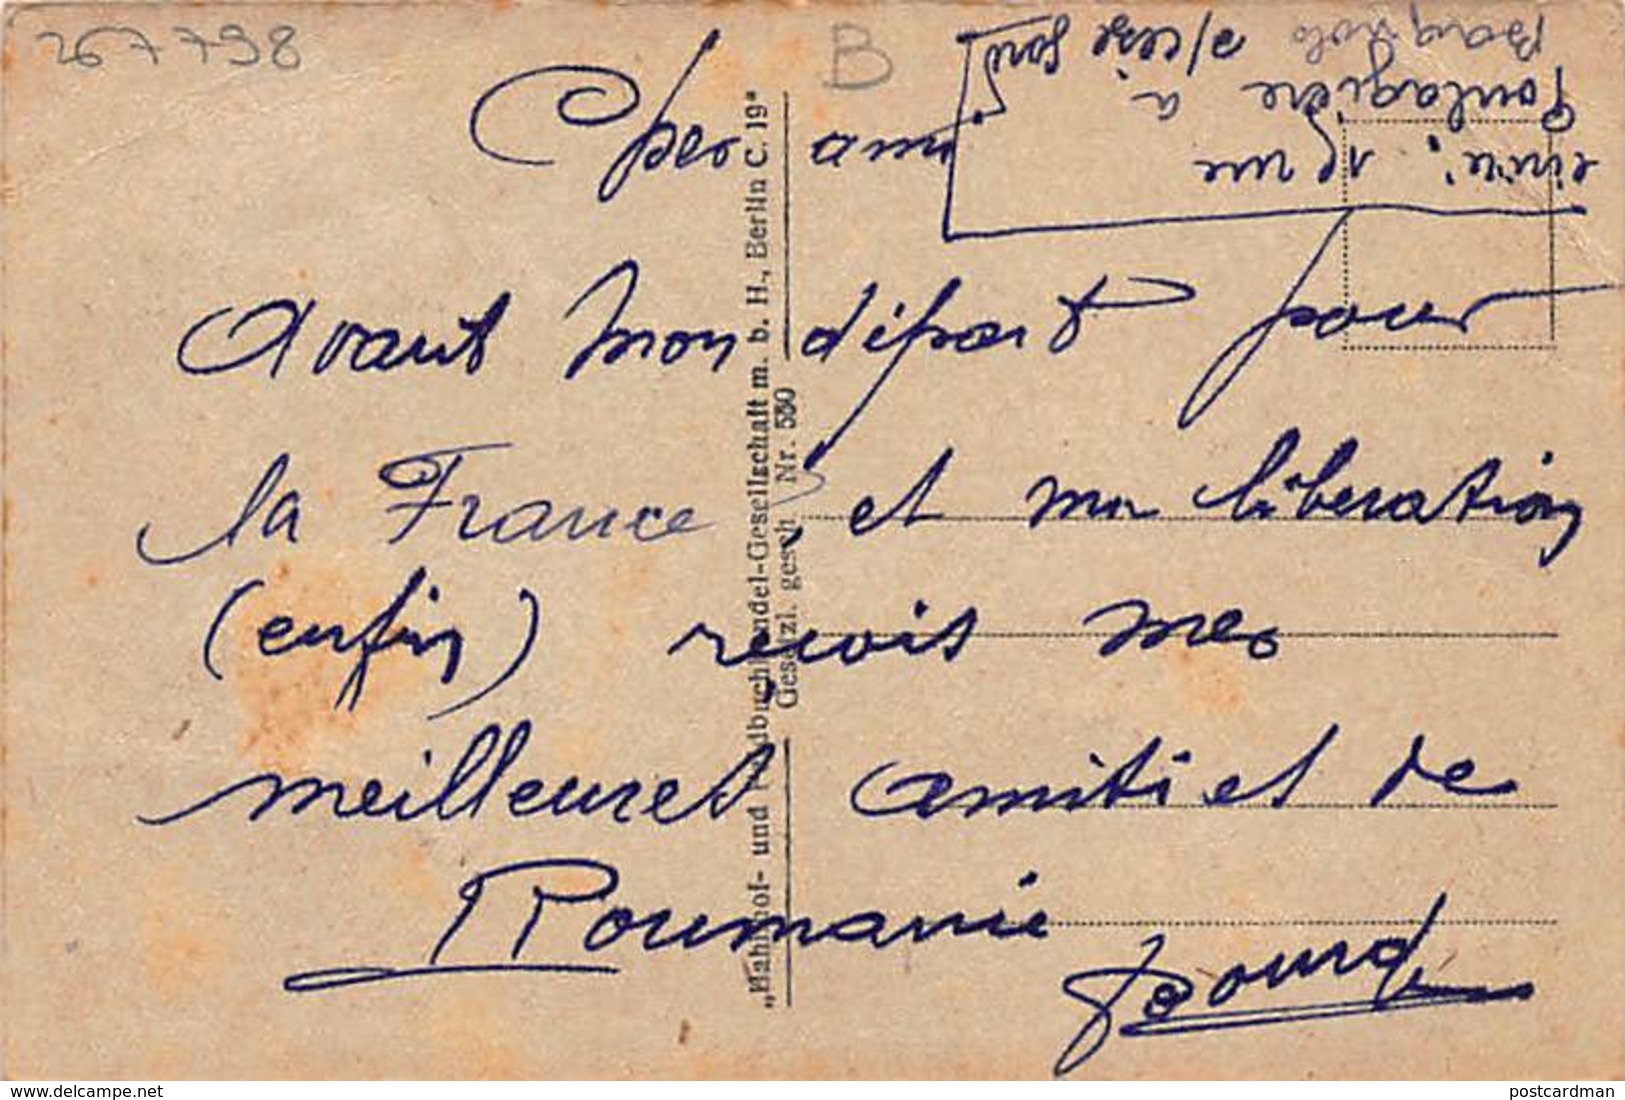 267798
B
Cher ami
Avant mon départ pour
la France, et ma libération
(enfin) reçois mes
meilleures amitiés de
Roumanie
à
s/ceze Gard
Bagnols
"Bahnhof- und Feldbuchhandel-Gesellschaft m. b. H., Berlin C. 19"
Gesetzl. gesch. Nr. 530
www.delcampe.net
postcardman